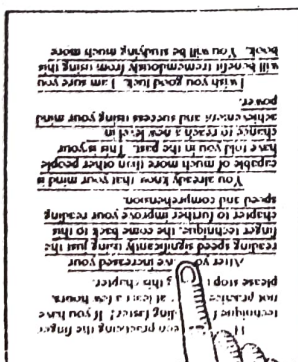 practicing the finger
technique faster? If you have
not at least a few hours,
please stop this chapter.
After increased your
reading speed significantly using just the
finger technique, the come back to this
chapter to further improve your reading
speed and comprehension.
You already know that your mind is
capable of much more than other people
have told you in the past. This is your
chance to reach a new level in
achievement and success using your mind
power.
I wish you good luck. I am sure you
will benefit tremendously from using this
book. You will be studying much more